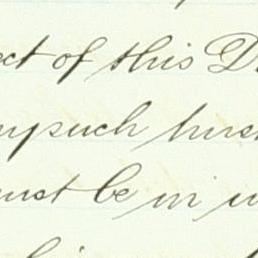 ect of this D
ny such hus
must be in w